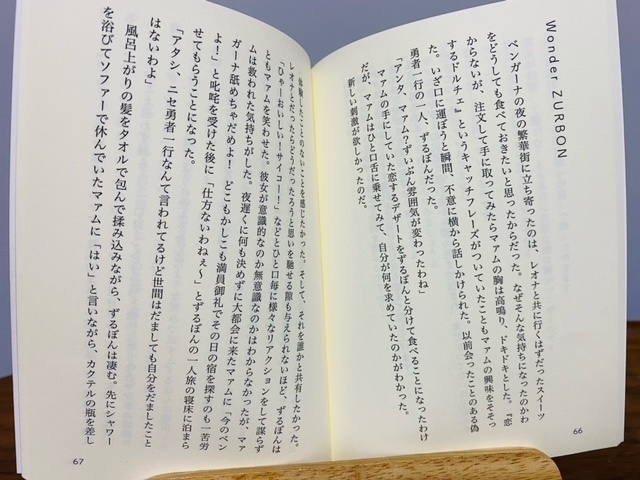 Wonder ZURBON
ベンガーナの夜の繁華街に立ち寄ったのは、レオナと共に行くはずだったスイーツ
をどうしても食べておきたいと思ったからだった。なぜそんな気持ちになったのかわ
からないが、注文して手に取ってみたらマァムの胸は高鳴り、ドキドキとした。『恋
するドルチェ』というキャッチフレーズがついていたこともマァムの興味をそそっ
た。いざ口に運ぼうと瞬間、不意に横から話しかけられた。以前会ったことのある偽
勇者一行の一人、ずるぼんだった。
「アンタ、マァム？ずいぶん雰囲気が変わったわね」
マァムの手にしていた恋するデザートをずるぼんと分けて食べることになったわけ
だが、マァムはひと口舌に乗せてみて、自分が何を求めていたのかがわかった。
新しい刺激が欲しかったのだ。
66
体験したことのないことを感じたかった。そして、それを誰かと共有したかった。
レオナとだったらどうだったろうと思いを馳せる隙も与えられないほど、ずるぼんは
「ひゃーおいしい！サイコー！」などとひと口毎に様々なリアクションをして謀らず
ともマァムを笑わせた。彼女が意識的なのか無意識なのかはわからなかったが、マァ
ムは救われた気持ちがした。夜遅くに何も決めずに大都会に来たマァムに「今のベン
ガーナ舐めちゃだめよ！どこもかしこも満員御礼でその日の宿を探すのも一苦労
よ！」と叱咤を受けた後に「仕方ないわねぇ〜」とずるぼんの一人旅の寝床に泊まら
せてもらうことになった。
「アタシ、ニセ勇者一行なんて言われてるけど世間はだましても自分をだましたこと
はないわよ」
風呂上がりの髪をタオルで包んで揉み込みながら、ずるぼんは凄む。先にシャワー
を浴びてソファーで休んでいたマァムに「はい」と言いながら、カクテルの瓶を差し
67